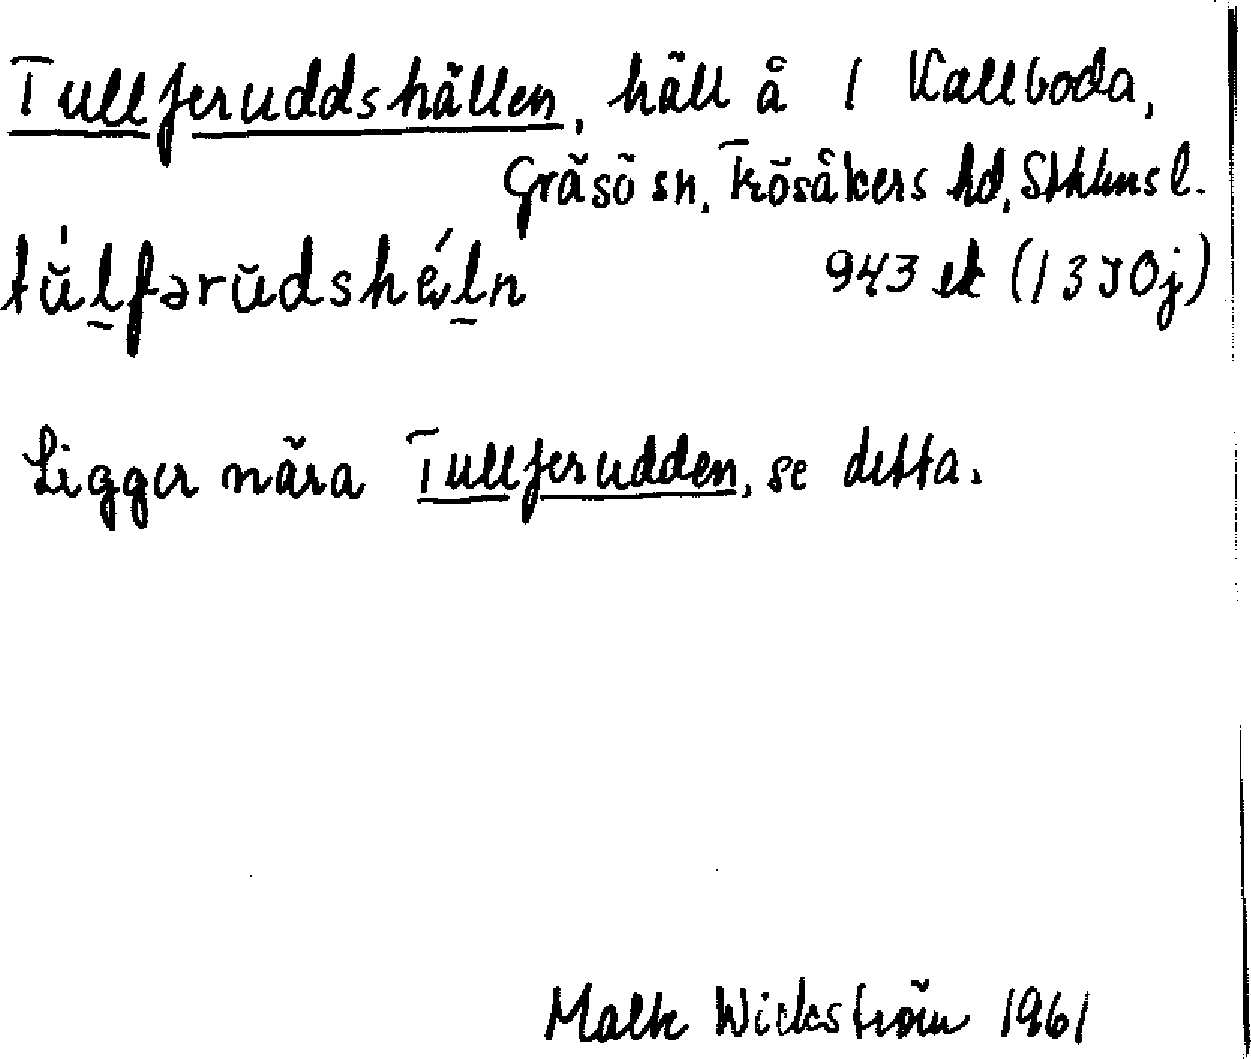 Tullferuddshällen, häll å 1 Kallboda,
Gräsö sn, Frösåkers hd, Sthlms l.
tŭ́lfərŭdshéln 943 ek (13I0j)
Ligger nära Tullferudden, se detta.
Wickström 1961